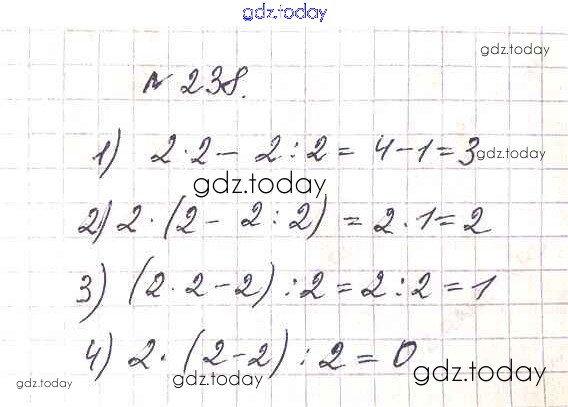 gdz.today
gdz.today
№ 238.
1) 2·2 - 2:2 = 4-1=3
gdz.today
gdz.today
2) 2·(2 - 2:2) = 2·1=2
3) (2·2-2):2=2:2=1
4) 2·(2-2):2=0
gdz.today
gdz.today
gdz.today